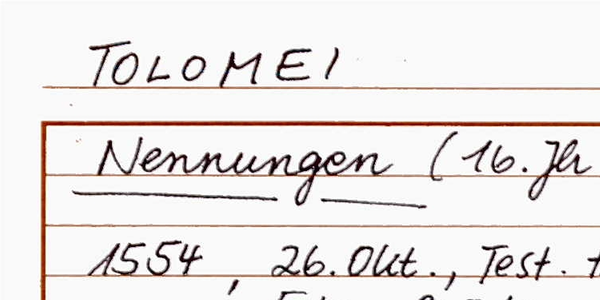 TOLOMEI
Nennungen (16. Jh
1554, 26. Okt., Test.